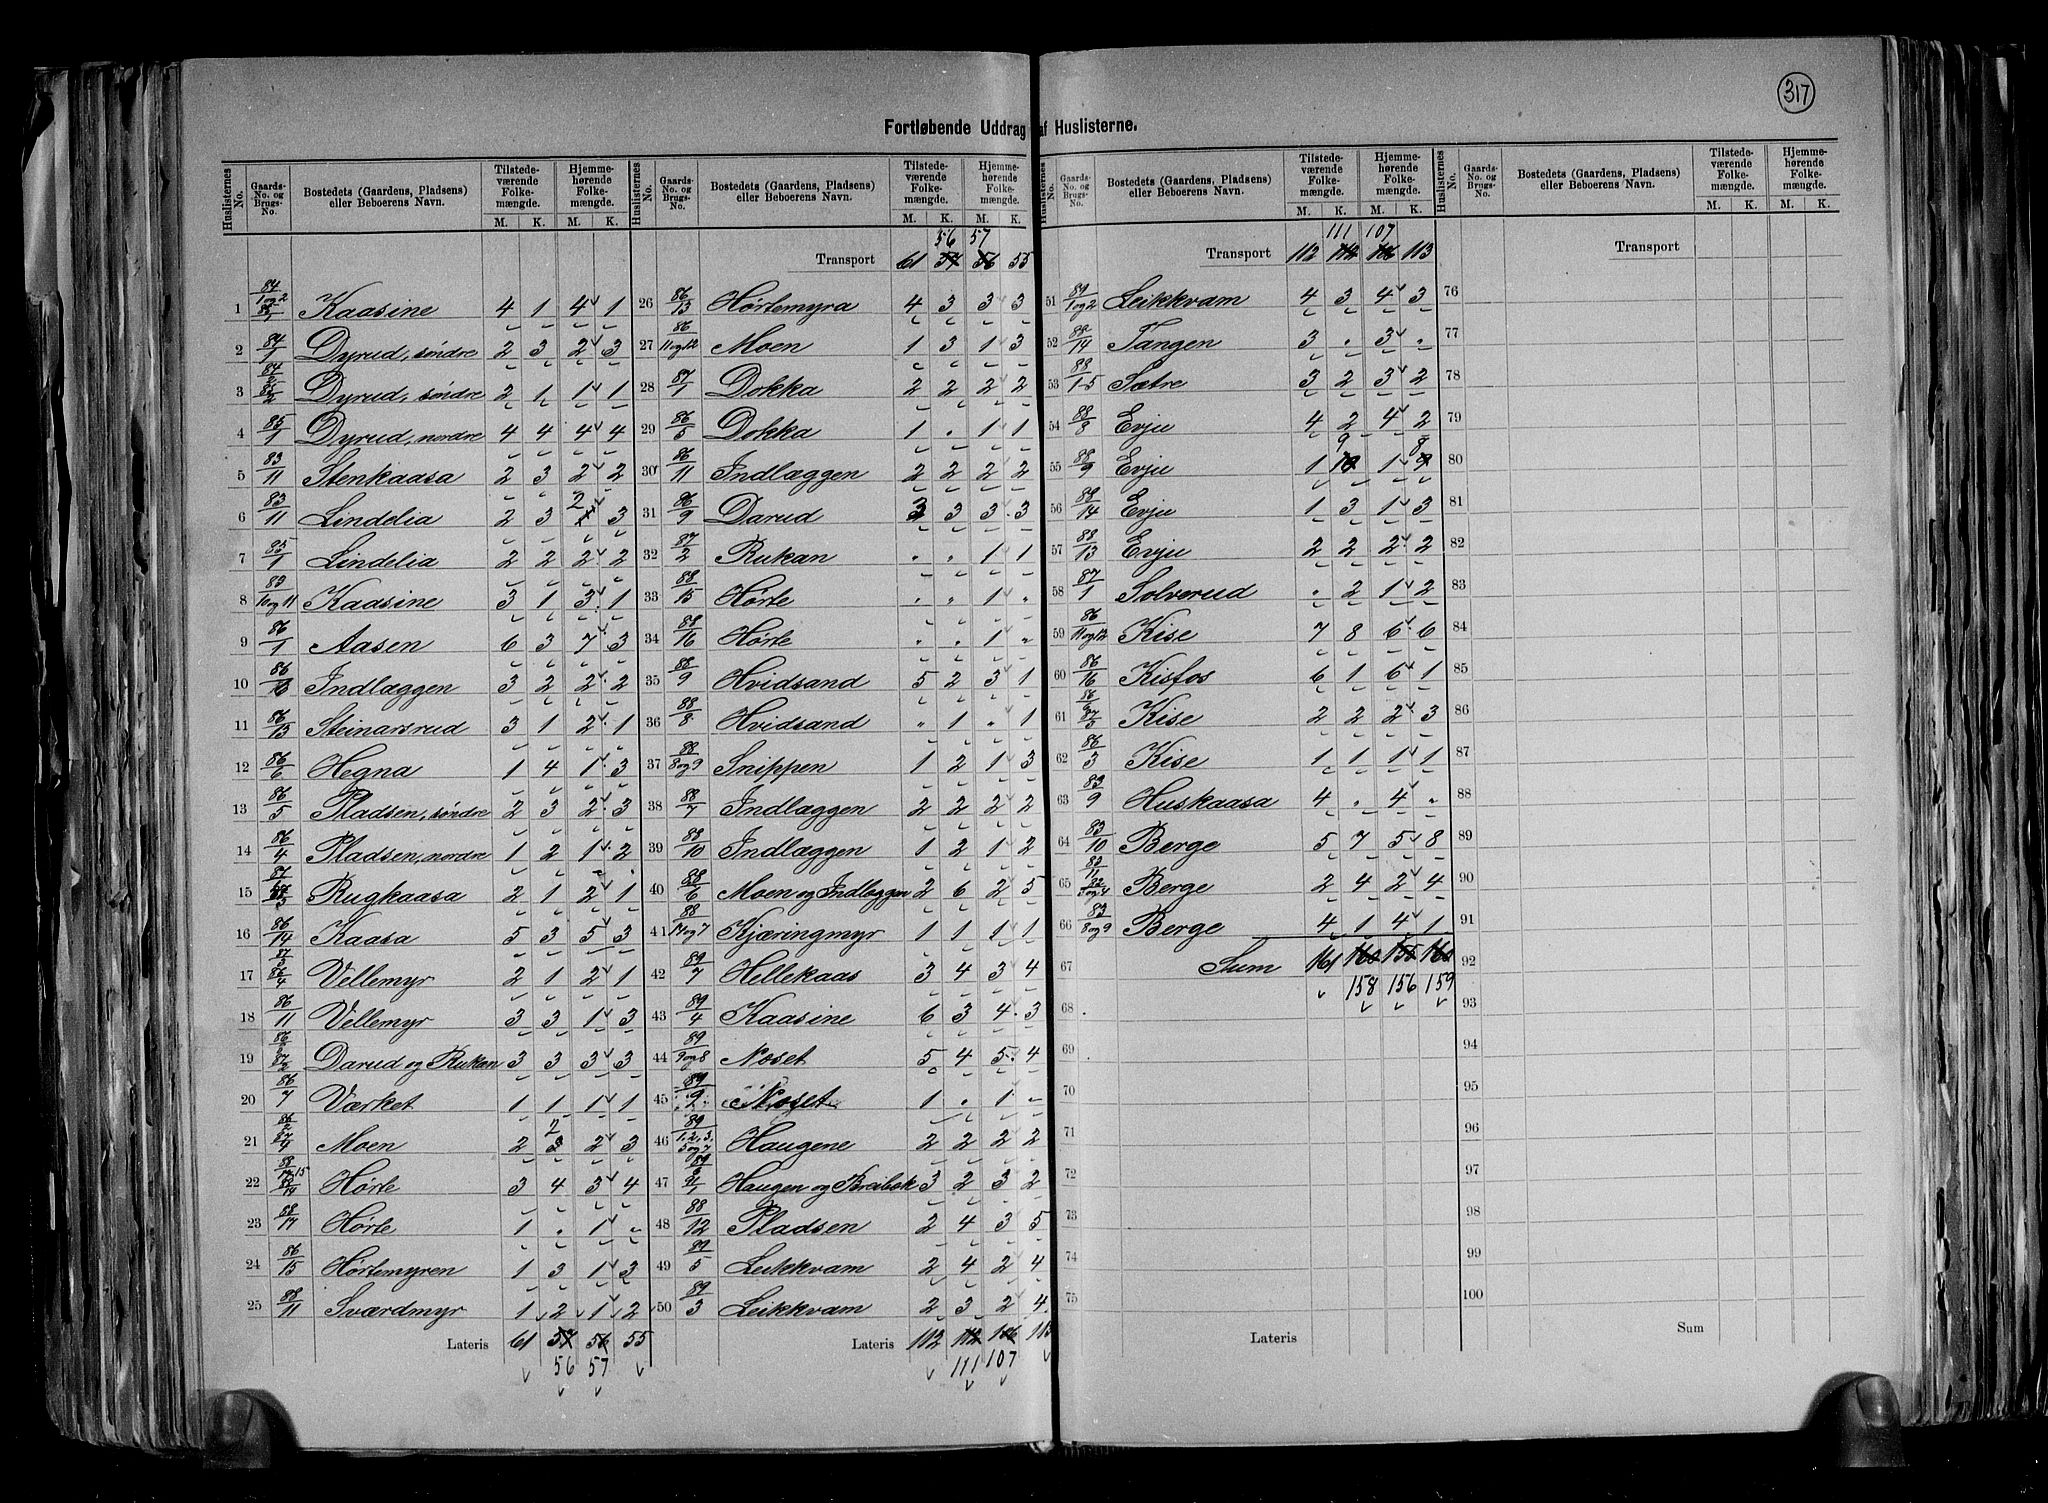 317
Fortløbende Uddrag af Huslisterne.
Huslisternes No. Gaards-No. og Brugs-No. Bostedets (Gaardens, Pladsens) eller Beboerens Navn. Tilstede-værende Folke-mængde. M. K. Hjemme-hørende Folke-mængde. M. K.
1 Kaasine 4 1 4 1
2 84/1 Dyrud, søndre 2 3 2 3
3 Dyrud, søndre 2 1 1 1
4 85/1 Dyrud, nordre 4 4 4 4
5 83/11 Stenkaasa 2 3 2 2
6 83/11 Lindelia 2 3 2 3
7 85/1 Lindelia 2 2 2 2
8 83/10 og 11 Kaasine 3 1 3 1
9 86/1 Aasen 6 3 7 3
10 Indlæggen 3 2 2 2
11 86/13 Steinarsrud 3 1 2 1
12 86/6 Hegna 1 4 1 3
13 86/5 Pladsen, søndre 2 3 2 3
14 86/4 Pladsen, nordre 1 2 1 2
15 Rugkaasa 2 1 2 1
16 86/14 Kaasa 5 3 5 3
17 Vellemyr 2 1 2 1
18 86/11 Vellemyr 3 3 1 3
19 Darud og Rukan 3 3 3 3
20 86/7 Værket 1 1 1 1
21 Moen 2 2 2 3
22 Hørte 3 4 3 4
23 88/17 Hørte 1 „ 1 „
24 86/15 Hørtemyren 1 3 1 3
25 88/11 Sværdmyr 1 2 1 2
Lateris 61 57 56 55
56 57
Huslisternes No. Gaards-No. og Brugs-No. Bostedets (Gaardens, Pladsens) eller Beboerens Navn. Tilstede-værende Folke-mængde. M. K. Hjemme-hørende Folke-mængde. M. K.
56 57
Transport 61 57 56 55
26 86/13 Hørtemyra 4 3 3 3
27 86/11 og 12 Moen 1 3 1 3
28 87/1 Dokka 2 2 2 2
29 86/5 Dokka 1 „ 1 1
30 86/11 Indlæggen 2 2 2 2
31 86/9 Darud 3 3 3 3
32 87/2 Rukan „ „ 1 1
33 88/15 Hørte „ „ 1 „
34 88/16 Hørte „ „ 1 „
35 88/9 Hvidsand 5 2 3 1
36 88/8 Hvidsand „ 1 „ 1
37 88/8 og 9 Snippen 1 2 1 3
38 88/7 Indlæggen 2 2 2 2
39 88/10 Indlæggen 1 2 1 2
40 88/6 Moen og Indlæggen 2 6 2 5
41 88/14 og 7 Kjæringmyr 1 1 1 1
42 89/7 Hellekaas 3 4 3 4
43 89/4 Kaasine 6 3 4 3
44 Noset 5 4 5 4
45 Noset 1 „ 1 „
46 89/1, 2, 3, 5 og 7 Haugene 2 2 2 2
47 Haugen og 3 2 3 2
48 88/12 Pladsen 2 4 3 5
49 89/5 Leikkvam 2 4 2 4
50 89/3 Leikkvam 2 3 2 4
Lateris 112 112 106 113
111 107
Huslisternes No. Gaards-No. og Brugs-No. Bostedets (Gaardens, Pladsens) eller Beboerens Navn. Tilstede-værende Folke-mængde. M. K. Hjemme-hørende Folke-mængde. M. K.
111 107
Transport 112 112 106 113
51 89/1 og 2 Leikkvam 4 3 4 3
52 88/14 Tangen 3 „ 3 „
53 88/1-5 Sætre 3 2 3 2
54 88/8 Evju 4 2 4 2
55 88/9 Evju 1 9 1 8
56 88/14 Evju 1 3 1 3
57 88/13 Evju 2 2 2 2
58 87/1 Solverud „ 2 1 2
59 86/11 og 12 Kise 7 8 6 6
60 86/16 Kisfos 6 1 6 1
61 Kise 2 2 2 3
62 86/3 Kise 1 1 1 1
63 83/9 Huskaasa 4 „ 4 „
64 83/10 Berge 5 7 5 8
65 Berge 2 4 2 4
66 83/8 og 9 Berge 4 1 4 1
67 Sum 161 160 155 160
158 156 159
68
69
70
71
72
73
74
75
Lateris
Huslisternes No. Gaards-No. og Brugs-No. Bostedets (Gaardens, Pladsens) eller Beboerens Navn. Tilstede-værende Folke-mængde. M. K. Hjemme-hørende Folke-mængde. M. K.
Transport
76
77
78
79
80
81
82
83
84
85
86
87
88
89
90
91
92
93
94
95
96
97
98
99
100
Sum